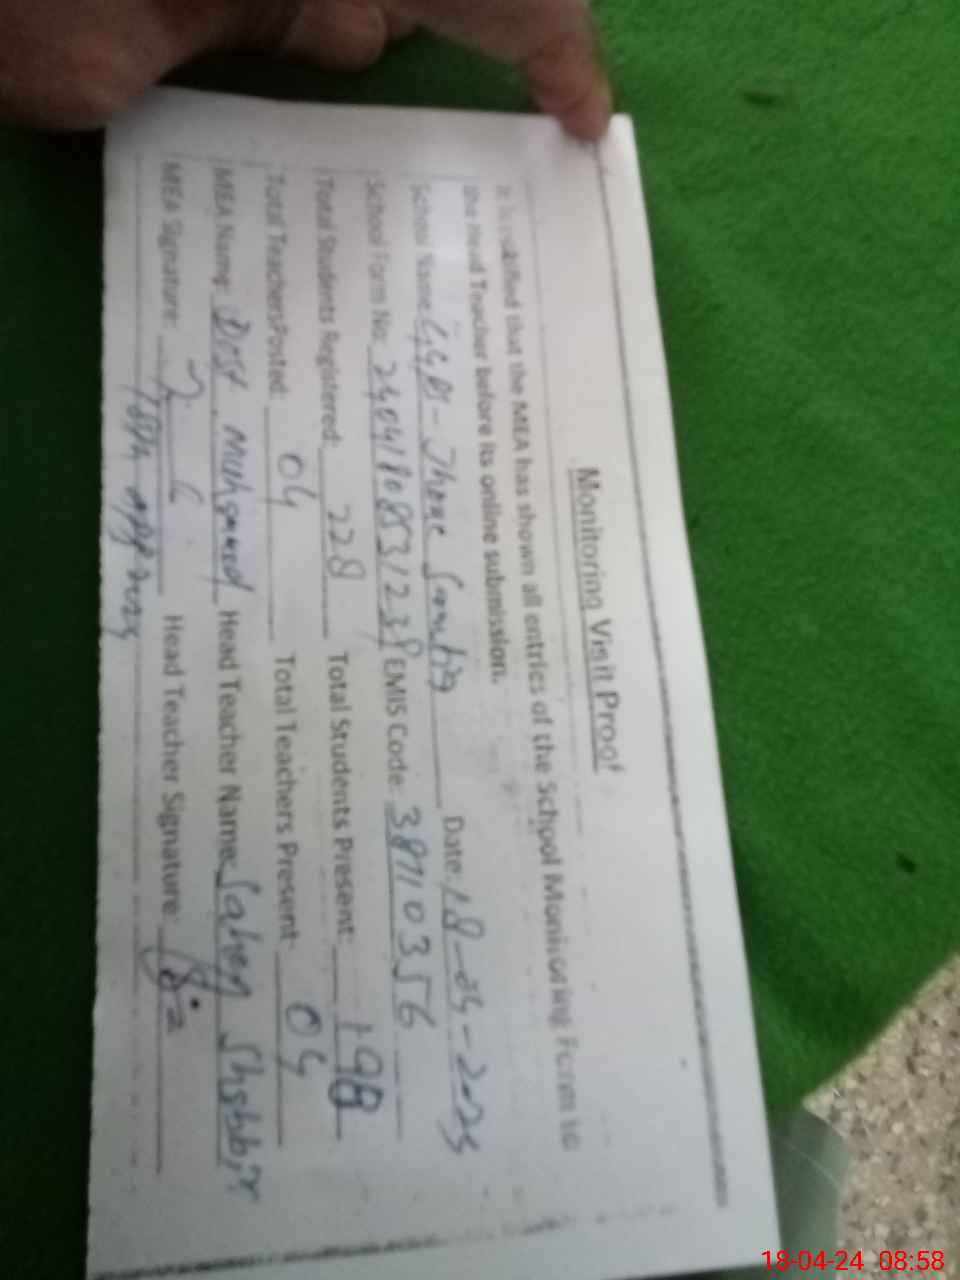 Monitoring Visit Proof
It is certified that the MEA has shown all entries of the School Monitoring Form to
the Head Teacher before its online submission.
School Name: GGPS - Jhoke Date: 18-04-2024
School Form No: EMIS Code: 38710356
Total Students Registered: 228 Total Students Present: 198
Total Teachers Posted: 04 Total Teachers Present: 04
MEA Name: Dost Muhammad Head Teacher Name: Shabbir
MEA Signature: Head Teacher Signature:
18-04-24 08:58